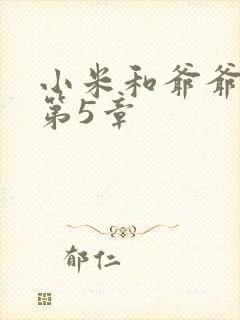 小米和爷爷
第5章
郁仁